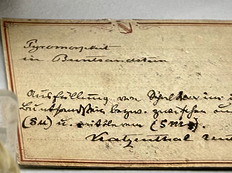 Pyromorphit
in Buntsandstein
Ausfüllung von Spalten im
Buntsandstein bezw. zwischen
(su) u. mittlerem (sm).
Katzenthal